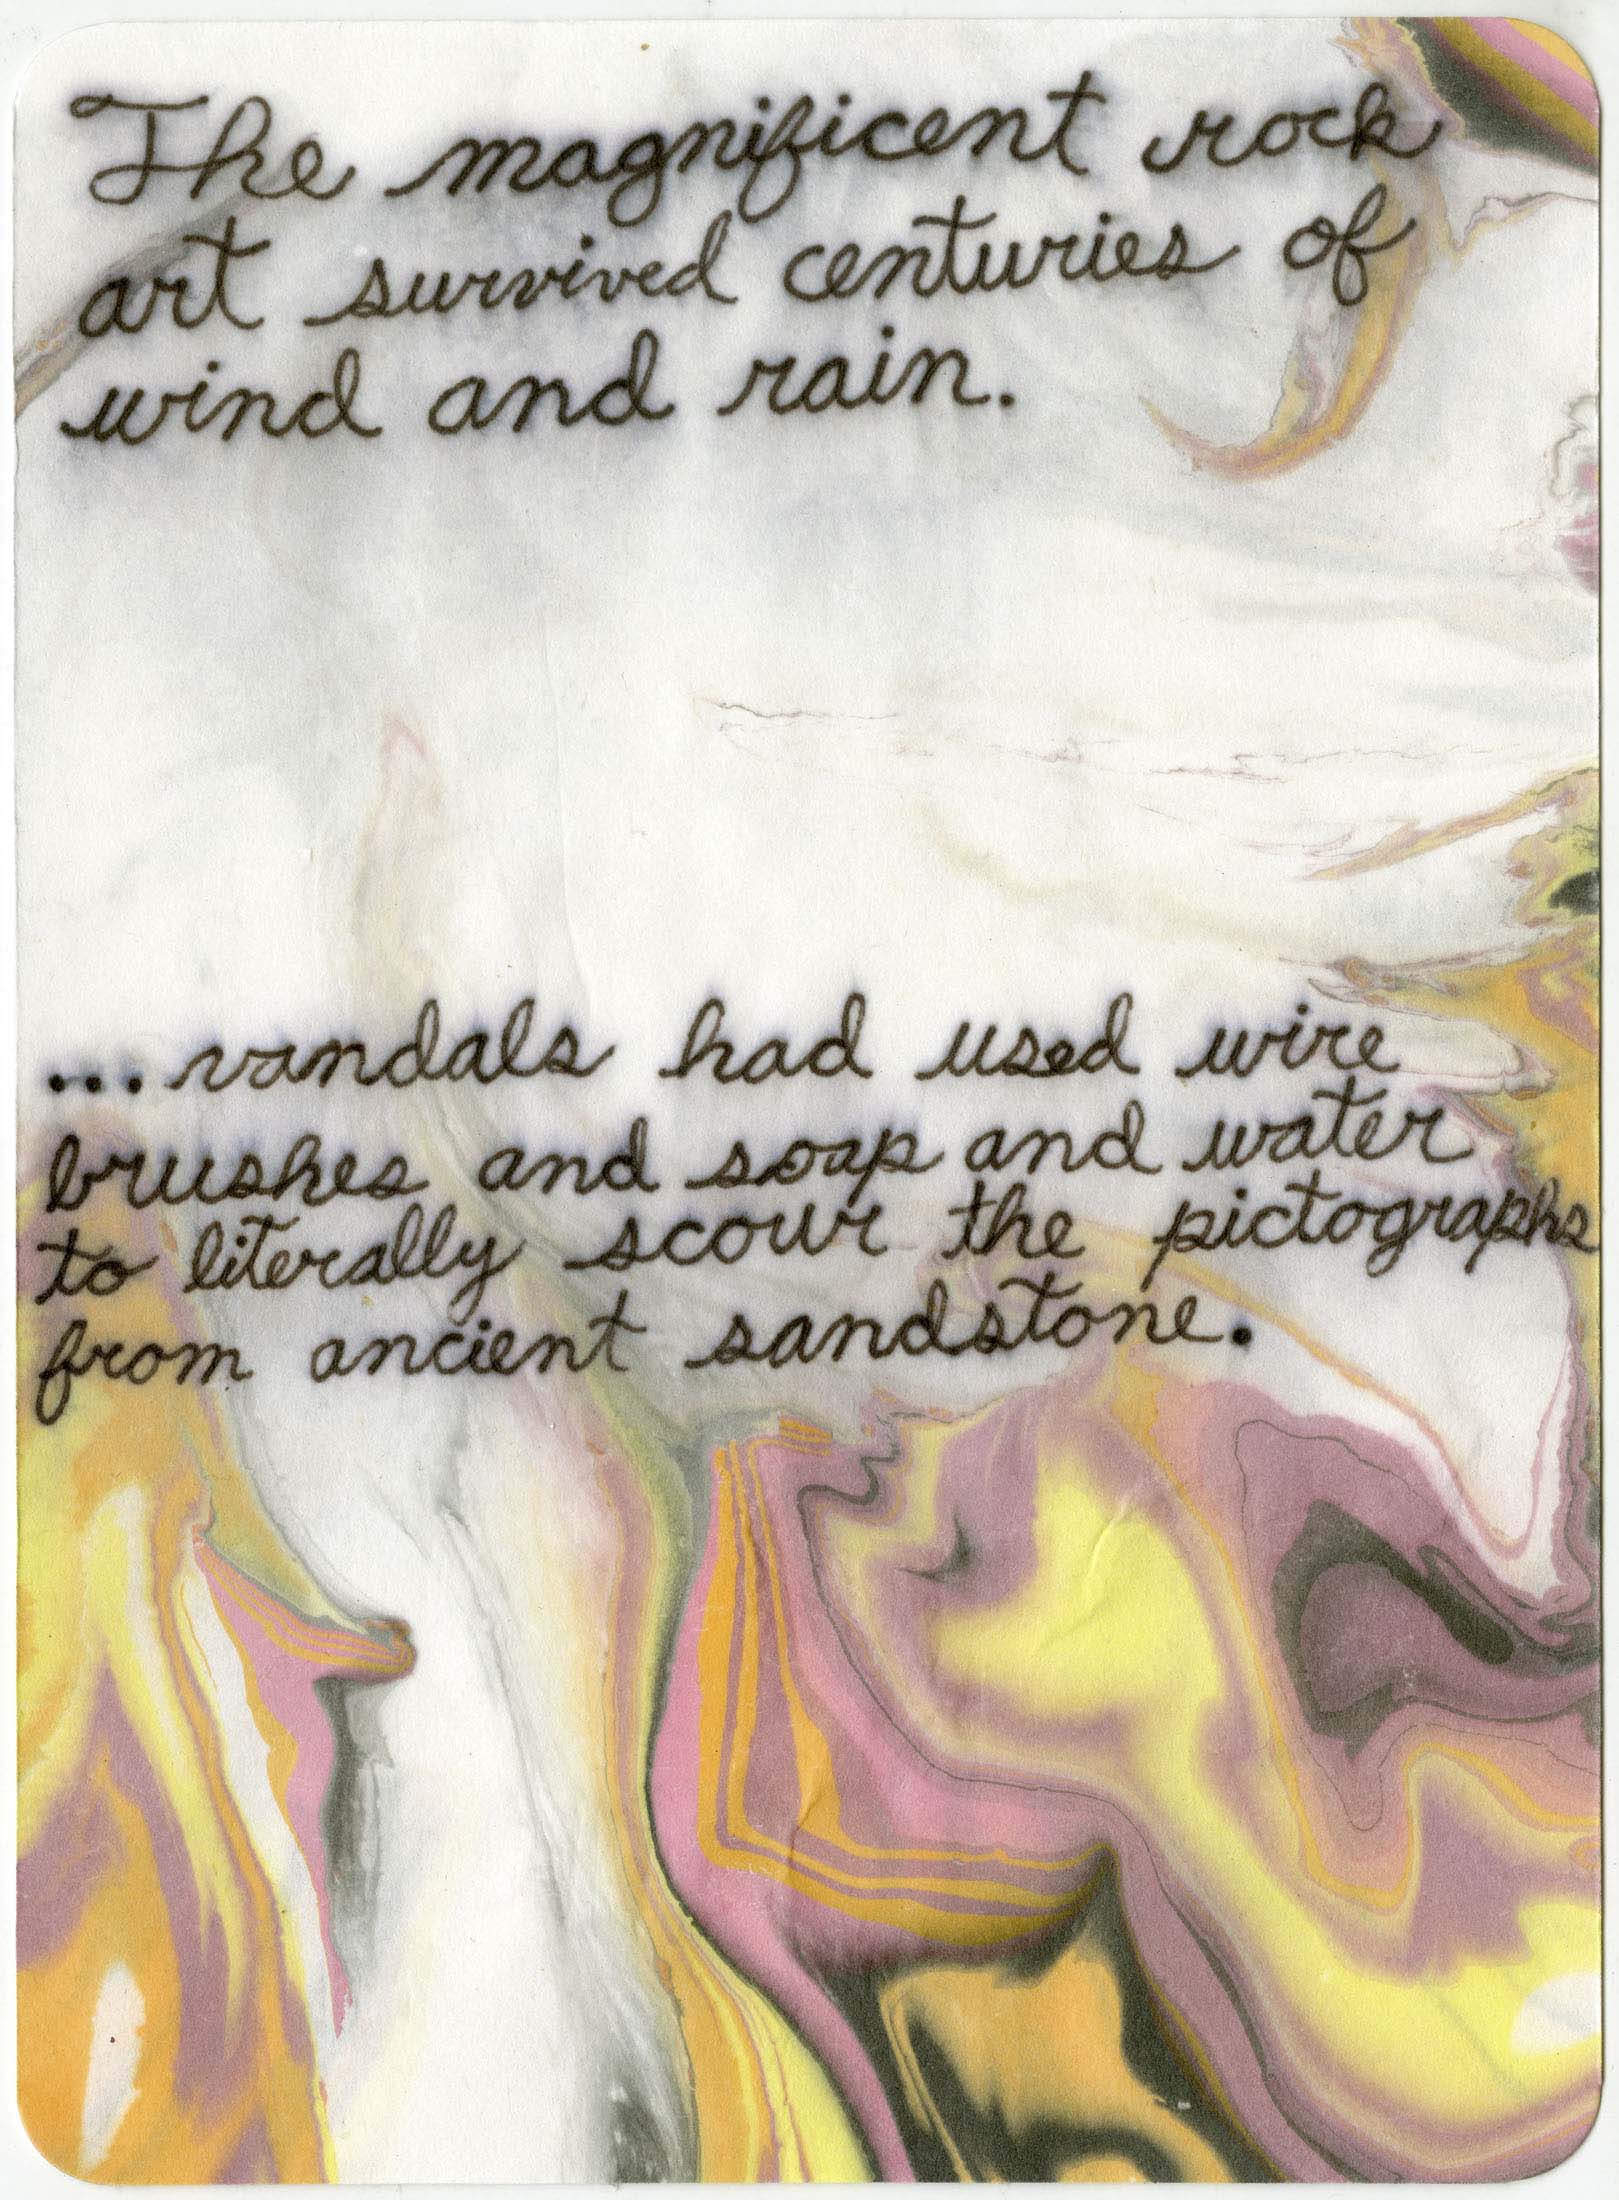 The magnificent rock
art survived centuries of
wind and rain.
...vandals had used wire
brushes and soap and water
to literally scour the pictographs
from ancient sandstone.